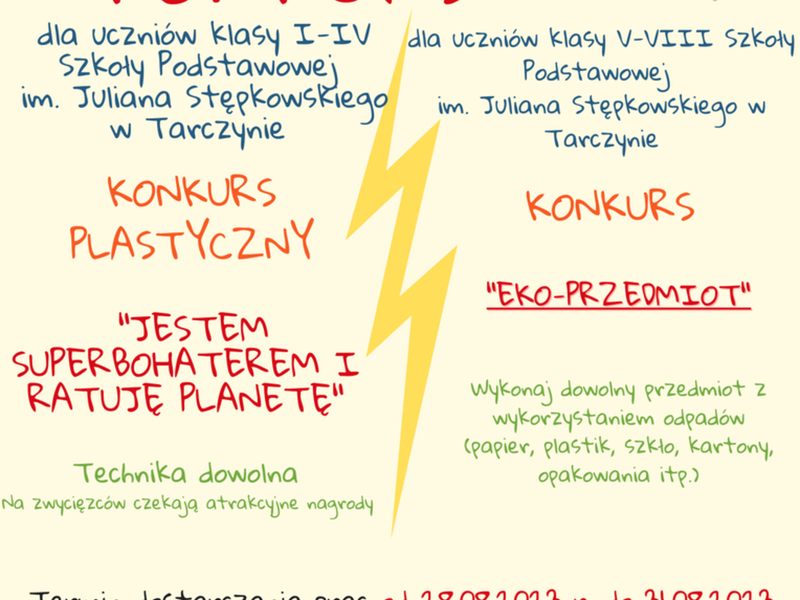 dla uczniów klasy I-IV
Szkoły Podstawowej
im. Juliana Stępkowskiego
w Tarczynie
KONKURS
PLASTYCZNY
"JESTEM
SUPERBOHATEREM I
RATUJĘ PLANETĘ"
Technika dowolna
Na zwycięzców czekają atrakcyjne nagrody
dla uczniów klasy V-VIII Szkoły
Podstawowej
im. Juliana Stępkowskiego w
Tarczynie
KONKURS
"EKO-PRZEDMIOT"
Wykonaj dowolny przedmiot z
wykorzystaniem odpadów
(papier, plastik, szkło, kartony,
opakowania itp.)